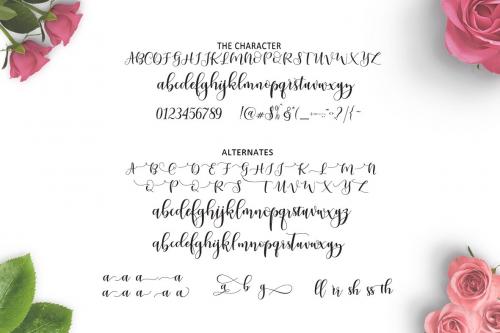 THE CHARACTER
ABCDEFGHIJKLMNOPQRSTUVWXYZ
abcdefghijklmnopqrstuvwxyz
0123456789 !@#$%^&*(_
ALTERNATES
A B C D E F G H I J K L M N
O P Q R S T U V W X Y Z
abcdefghijklmnopqrstuvwxyz
abcdefghijklmnopqrstuvwxyz
a a a a
a a a a a a b g ll rr sh ss th